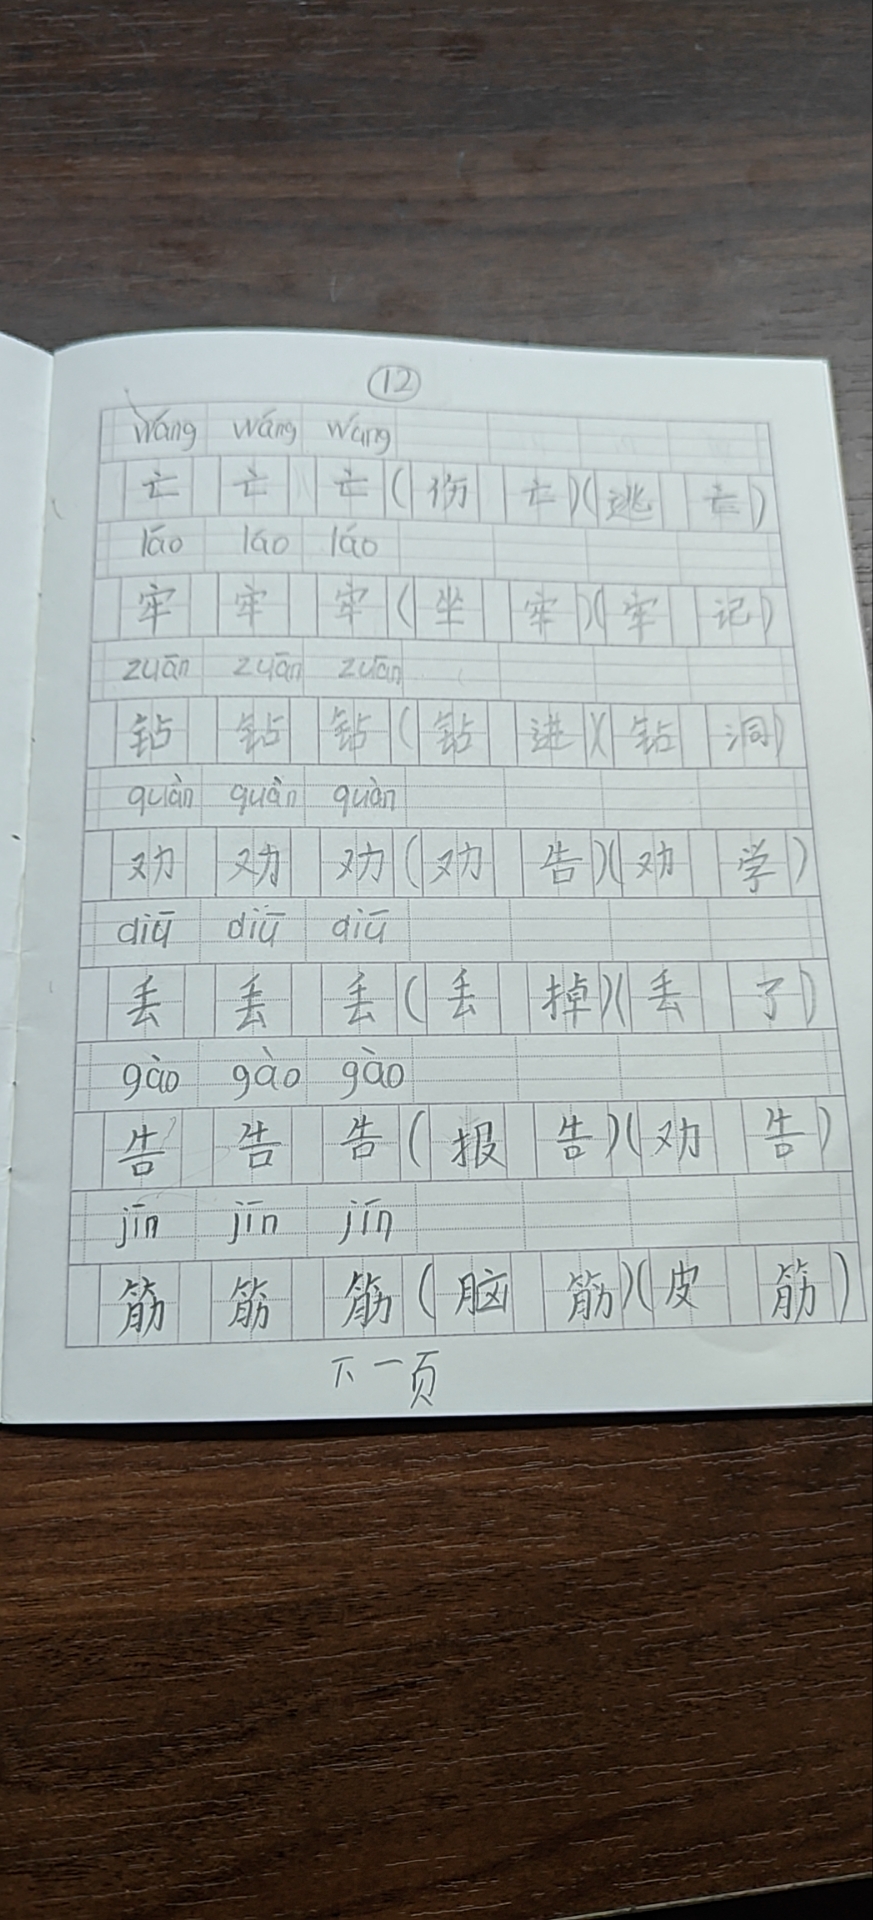 12
wáng wáng wáng
亡 亡 亡 (伤 亡)(逃 亡)
láo láo láo
牢 牢 牢 (坐 牢)(牢 记)
zuān zuān zuān
钻 钻 钻 (钻 进)(钻 洞)
quàn quàn quàn
劝 劝 劝 (劝 告)(劝 学)
diū diū diū
丢 丢 丢 (丢 掉)(丢 了)
gào gào gào
告 告 告 (报 告)(劝 告)
jīn jīn jīn
筋 筋 筋 (脑 筋)(皮 筋)
下一页